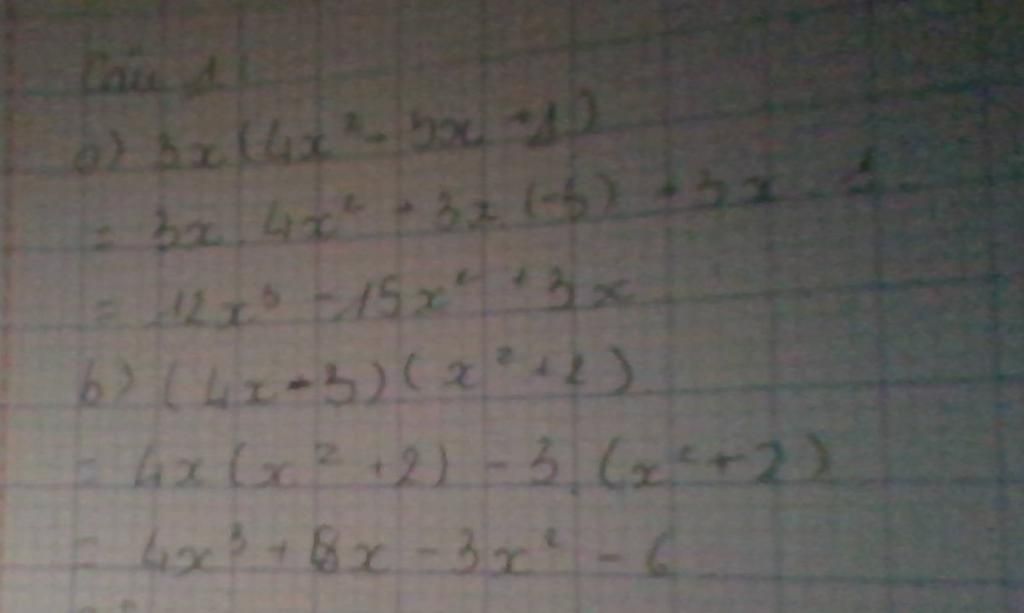 Câu 1
a) 3x(4x² - 5x + 1)
= 3x. 4x² + 3x.(-5) + 3x . 1
= 12x³ - 15x² + 3x
b) (4x - 3)(x² + 2)
= 4x(x² + 2) - 3.(x² + 2)
= 4x³ + 8x - 3x² - 6